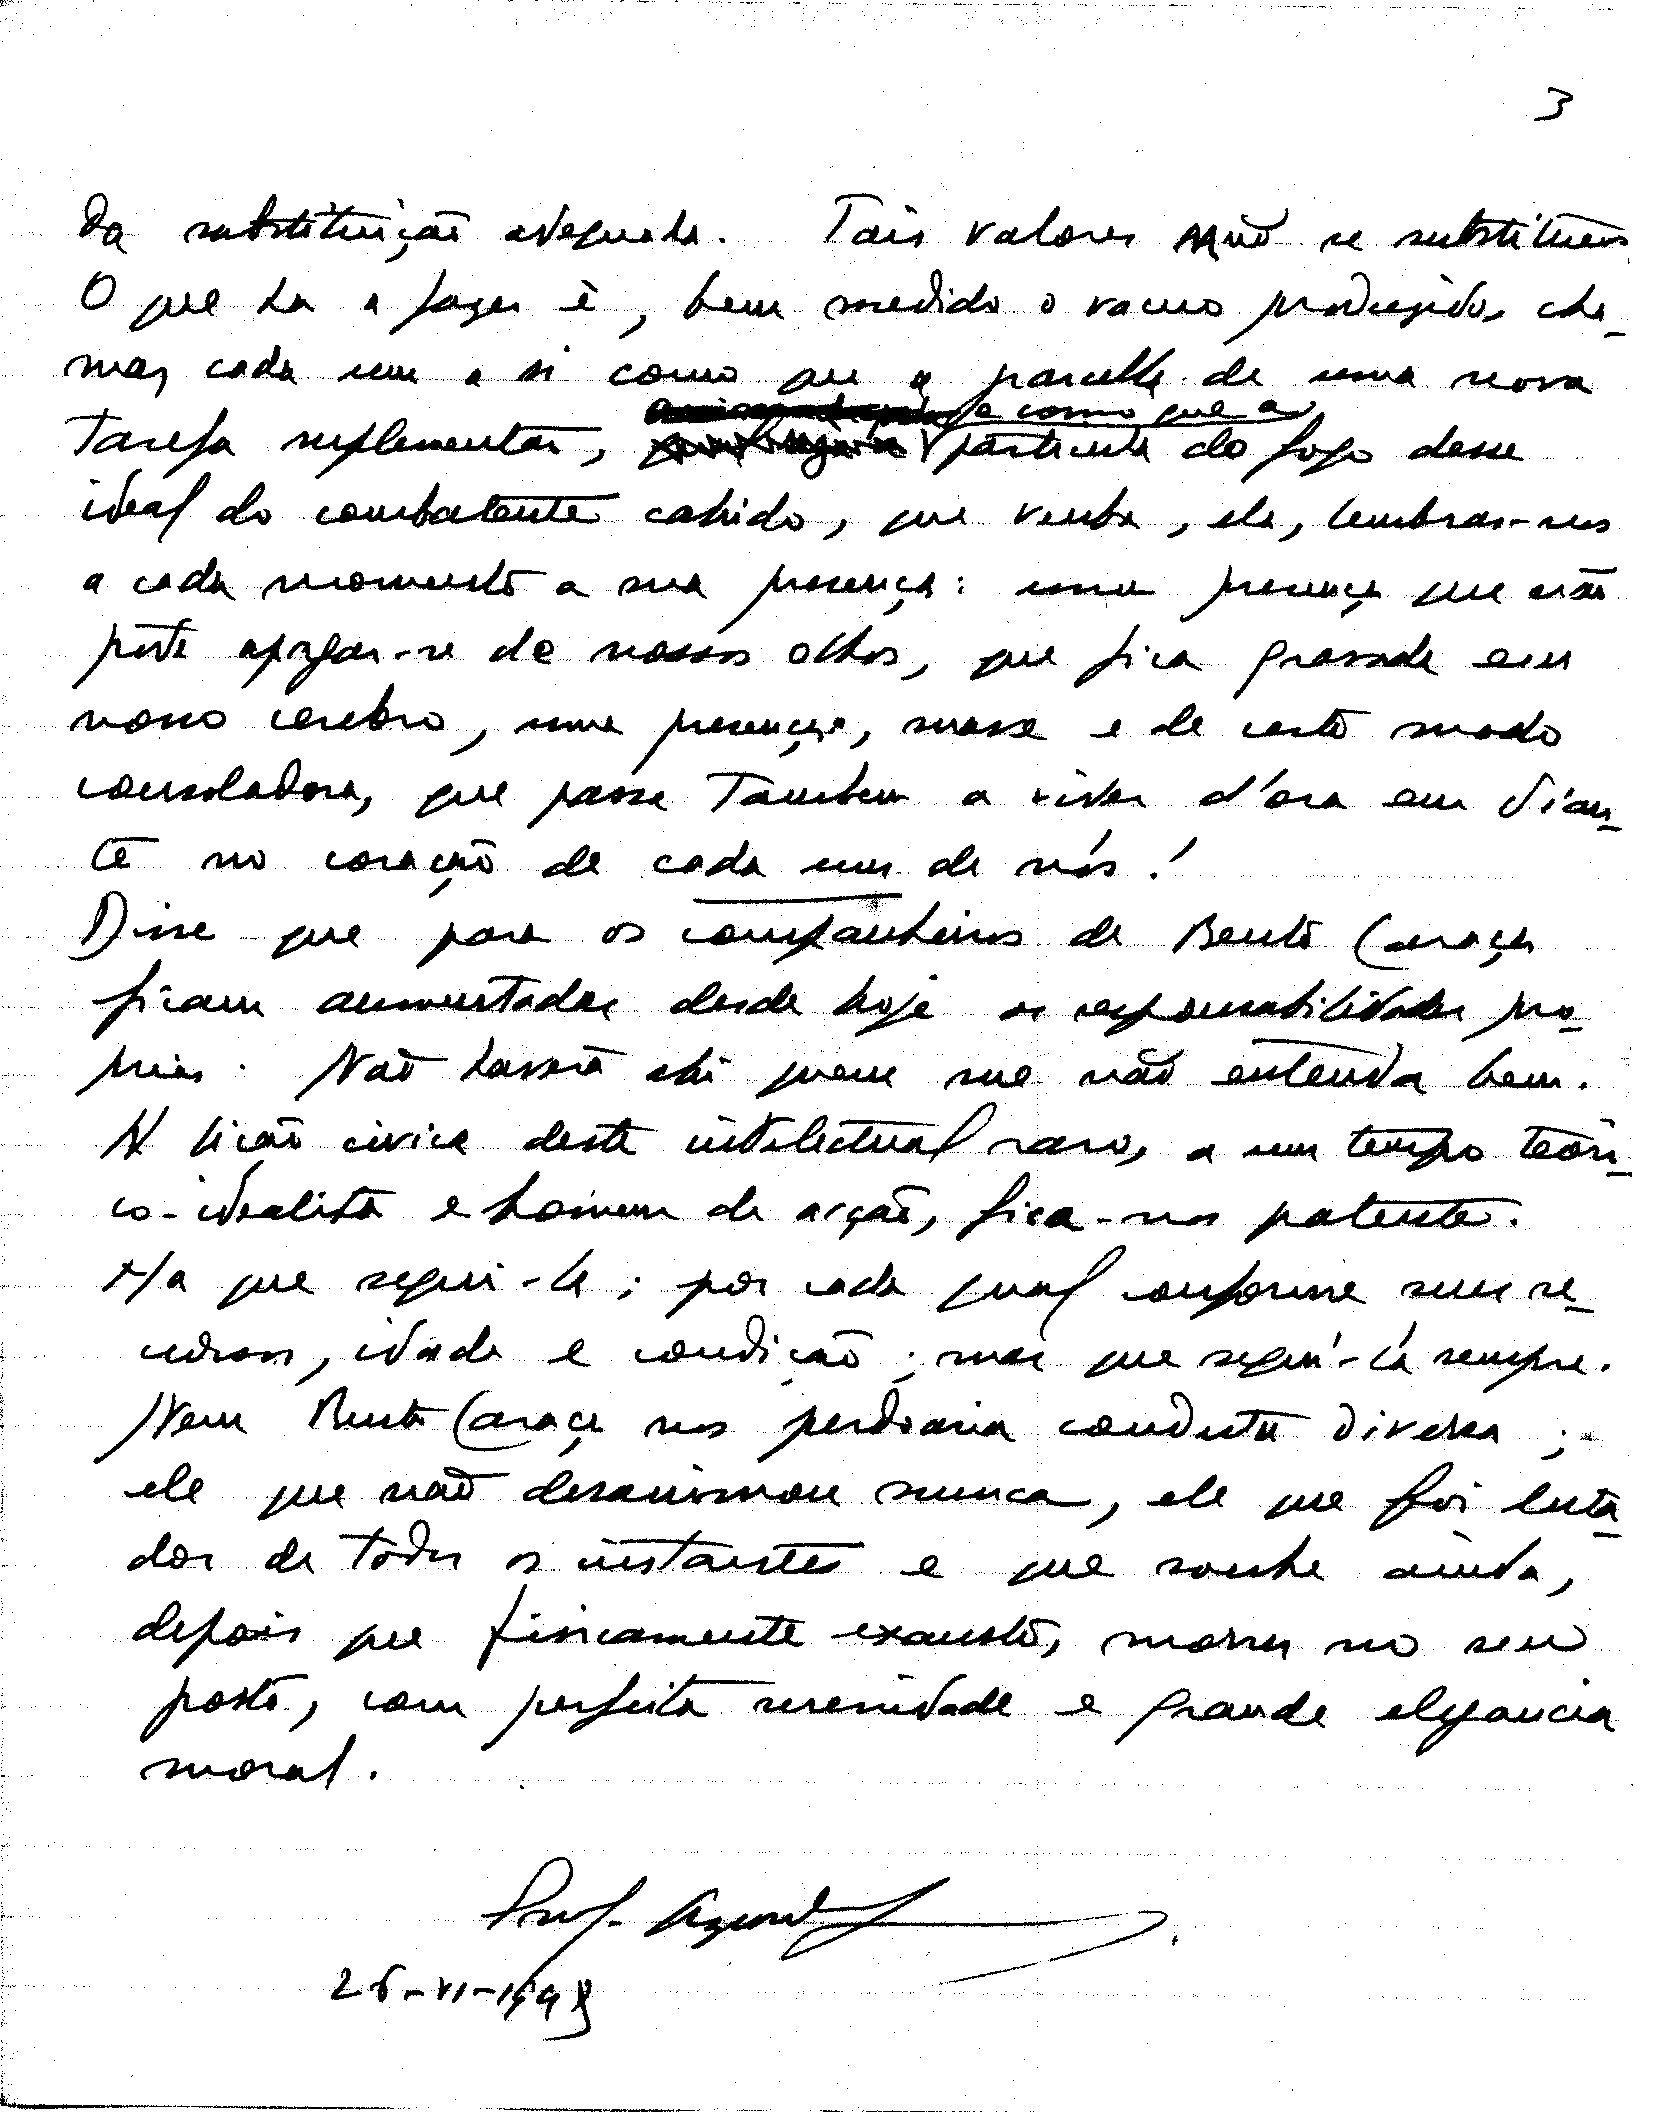 3
da substituição adequada. Tais valores não se substituem
O que ha a fazer é, bem medido o vacuo produzido, cha-
mar cada um a si como que a parcella de uma nova
e como que a
Tarefa suplementar, particula do fogo desse
ideal do combatente cahido, que venha, ela, lembrar-nos
a cada momento a sua presença: uma presença que não
pode apagar-se de nossos olhos, que fica gravada em
nosso cerebro, uma presença, suave e de certo modo
consoladora, que passe Tambem a viver d'ora em dian-
te no coração de cada um de nós!
Disse que para os companheiros de Bento Caraça
ficam aumentadas desde hoje as responsabilidades pro-
prias. Não haverá ahi quem me não entenda bem.
A lição civica deste intelectual raro, a um tempo teori-
co-idealista e homem de acção, fica-nos patente.
Ha que segui-la; por cada qual conforme seus re-
cursos, idade e condição; mas que segui-la sempre.
Nem Bento Caraça nos perdoaria conduta diversa;
ele que não desanimou nunca, ele que foi luta-
dor de todos os instantes e que soube ainda,
depois que fisicamente exausto, morrer no seu
posto, com perfeita serenidade e grande elegancia
moral.
Prof.
26-VI-1948